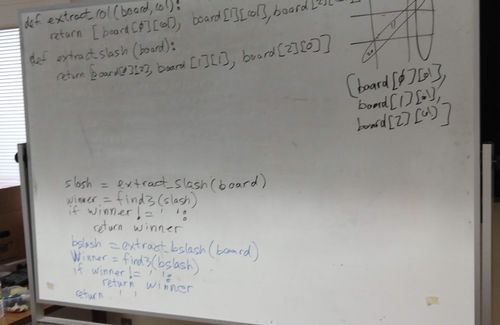 def extract_col(board, col):
return [board[0][col], board[1][col], board[2]
def extract_slash (board):
return [board[0][2], board[1][1], board[2][0]]
[board[0][col],
board[1][col],
board[2][col]]
slash = extract_slash(board)
winner = find3(slash)
if winner != ' ':
return winner
bslash = extract_bslash(board)
winner = find3(bslash)
if winner != ' ':
return winner
return ' '